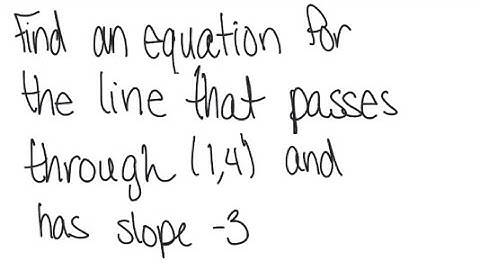 Find an equation for
the line that passes
through (1,4) and
has slope -3